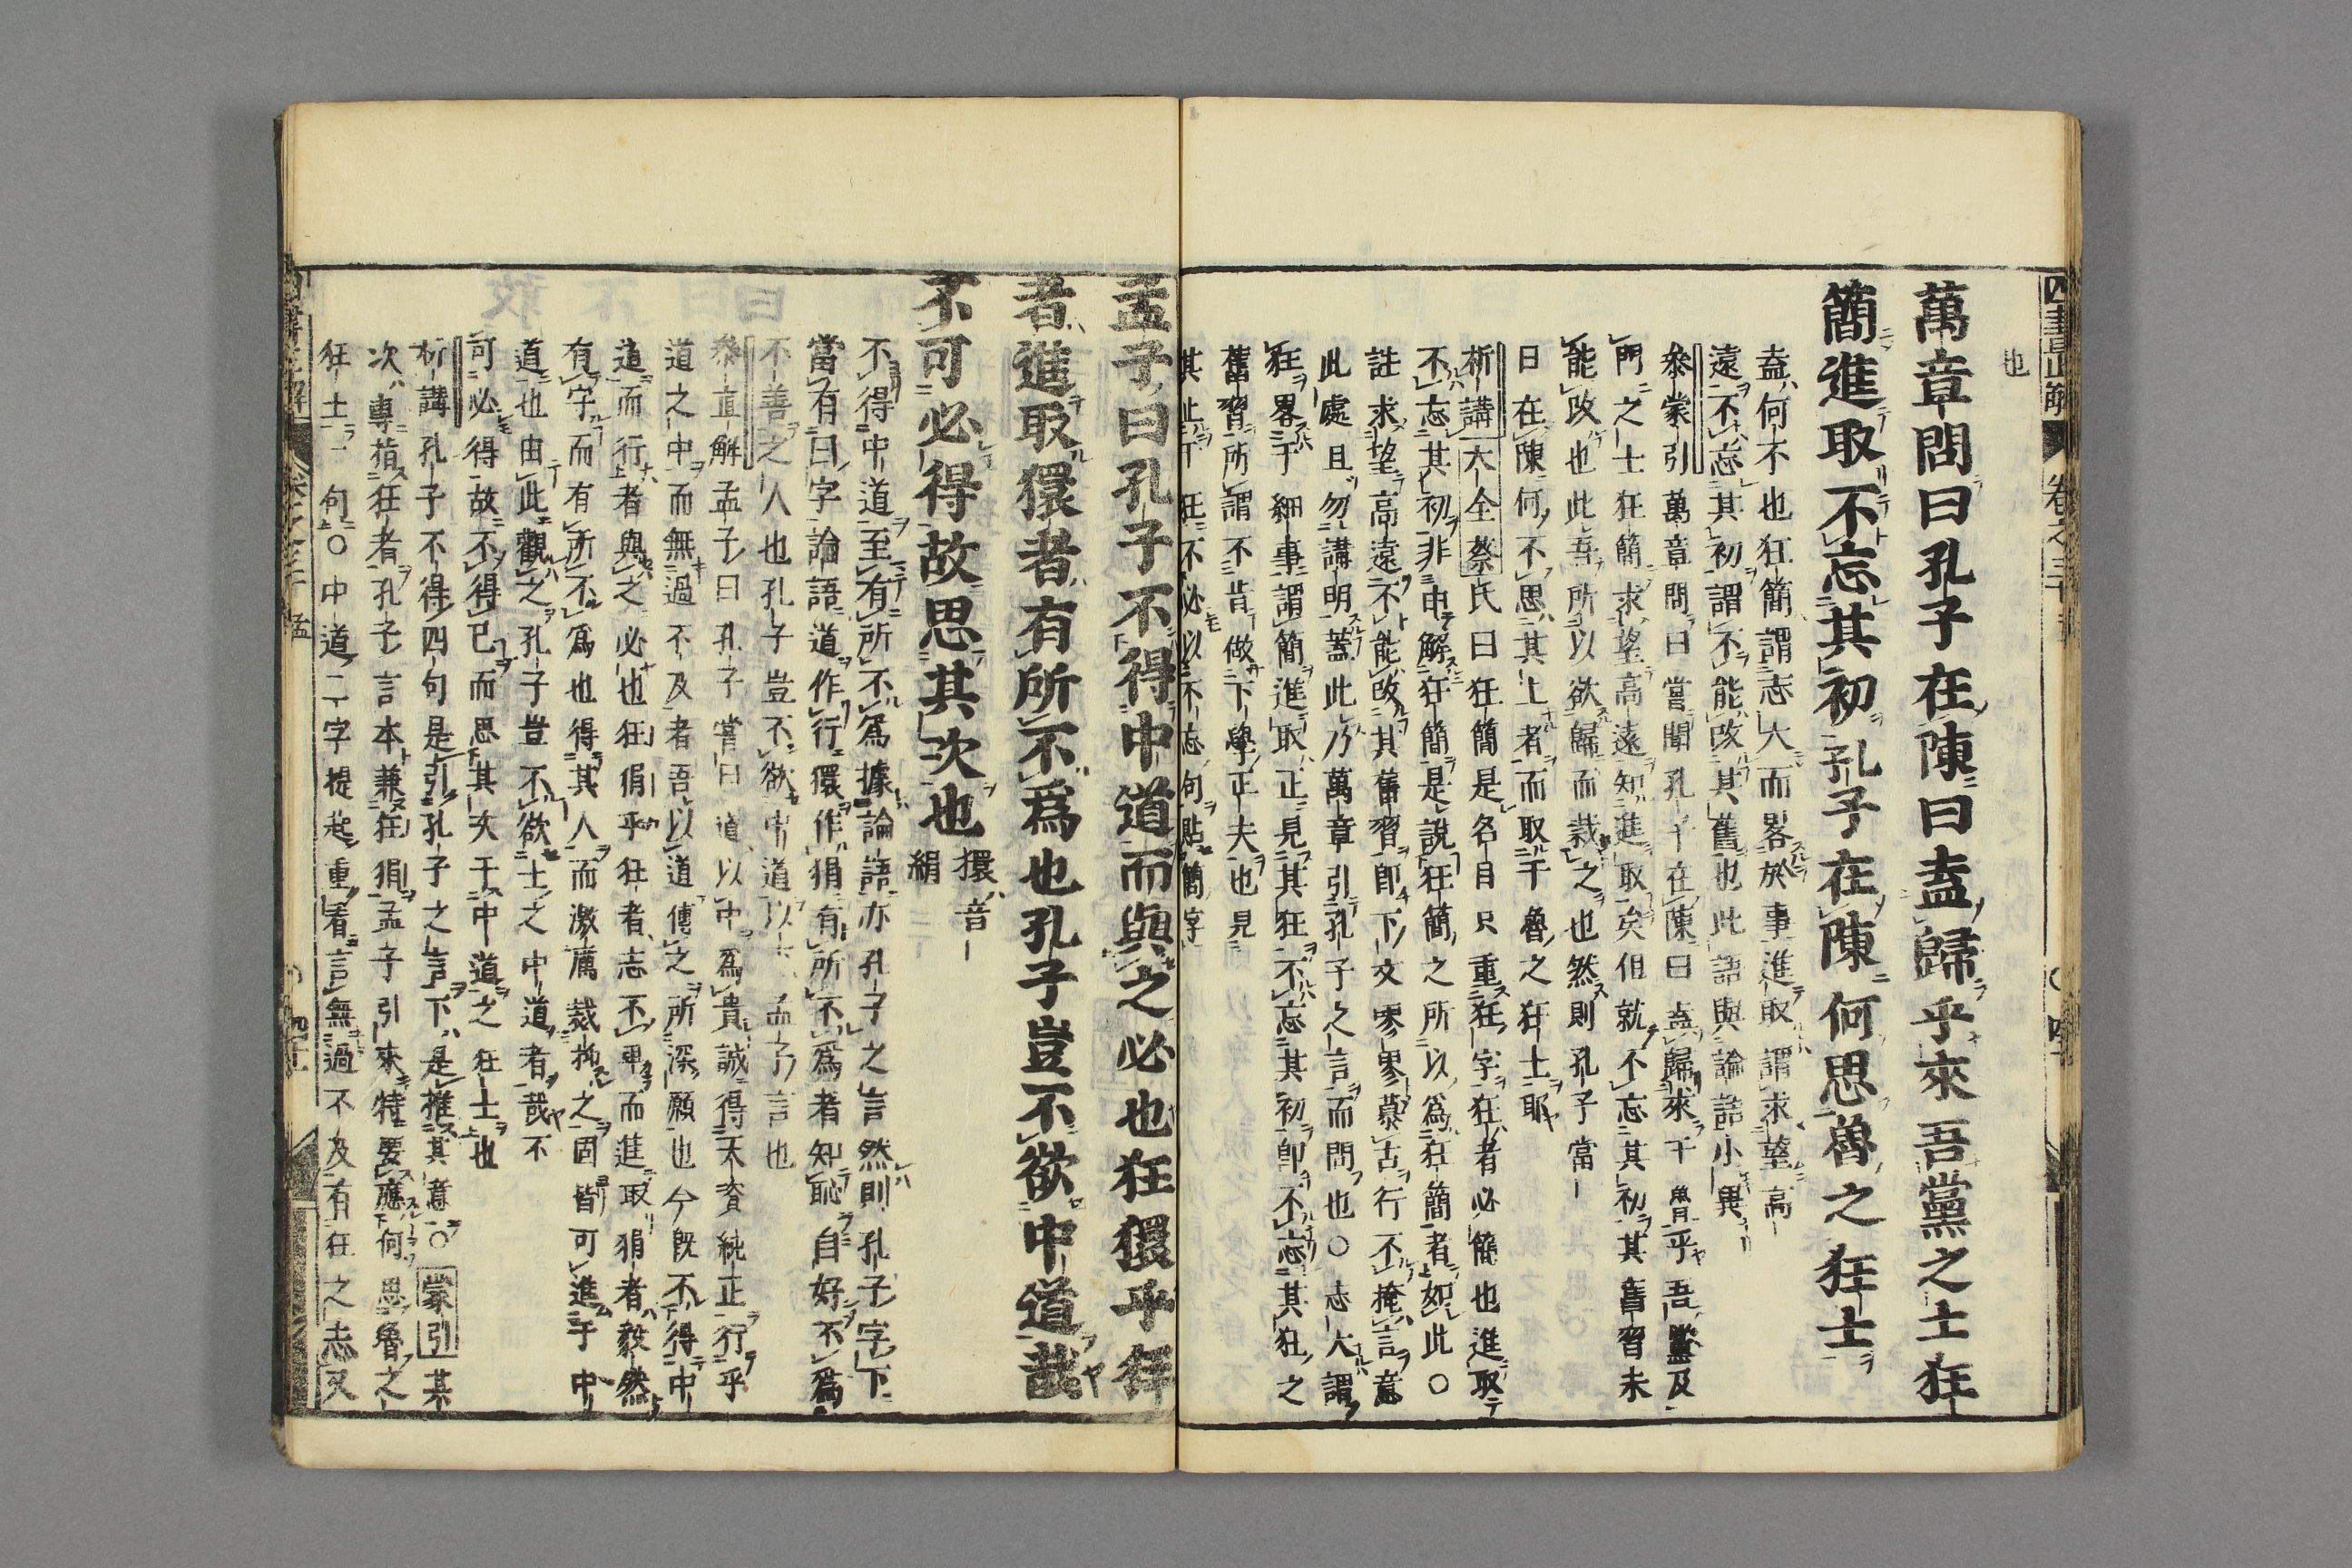 四書正解 卷之三十
也
萬章問曰孔子在陳曰盍歸乎來吾黨之士狂
簡進取不忘其初孔子在陳何思魯之狂士
盍何不也狂簡謂志大而畧於事進取謂求望高
遠不忘其初謂不能改其舊也此語與論語小異
叅蒙引萬章問曰嘗聞孔子在陳曰盍歸來于魯乎吾黨及
門之士狂簡求望高遠知進取矣但就不忘其初其舊習未
能改也此吾所以欲歸而裁之也然則孔子當
日在陳何不思其上者而取于魯之狂士耶
析講大全蔡氏曰狂簡是名目只重狂字狂者必簡也進取
不忘其初非申解狂簡是說狂簡之所以爲狂簡者如此〇
註求望高遠不能改其舊習卽下文嘐嘐慕古行不掩言意
此處且勿講明蓋此乃萬章引孔子之言而問也〇志大謂
狂畧于細事謂簡進取正見其狂不忘其初卽不忘其狂之
舊習所謂不肯做下學正夫也見
其止于狂不必以不忘句貼簡字
孟子曰孔子不得中道而與之必也狂獧乎狂
者進取獧者有所不爲也孔子豈不欲中道哉
不可必得故思其次也獧音
絹
不得中道至有所不爲據論語亦孔子之言然則孔子字下
當有曰字論語道作行獧作狷有所不爲者知恥自好不爲
不善之人也孔子豈不欲中道以下孟子言也
叅直解孟子曰孔子嘗曰道以中爲貴誠得天資純正行乎
道之中而無過不及者吾以道傳之所深願也今旣不得中
道而行者與之必也狂狷乎狂者志不卑而進取狷者毅然
有字而有所不爲也得其人而激厲裁抑之固皆可進于中
道也由此觀之孔子豈不欲士之中道者哉不
可必得故不得已而思其次于中道之狂士也
析講孔子不得四句是引孔子之言下是推其意〇蒙引某
次專指狂者孔子言本兼狂狷孟子引來特要應何思魯之
狂士一句〇中道二字提起重看言無過不及有狂之志又